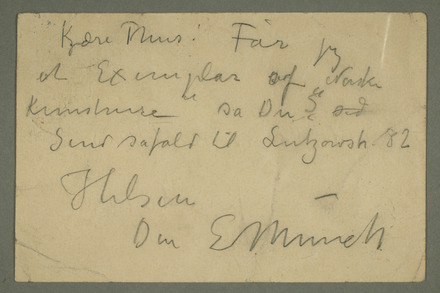 Kjære Thiis! Får jeg
et Exemplar af "Norske
Kunstnere" sa Du
Send såfald til Lutzowstr. 82
Hilsen
Din E Munch